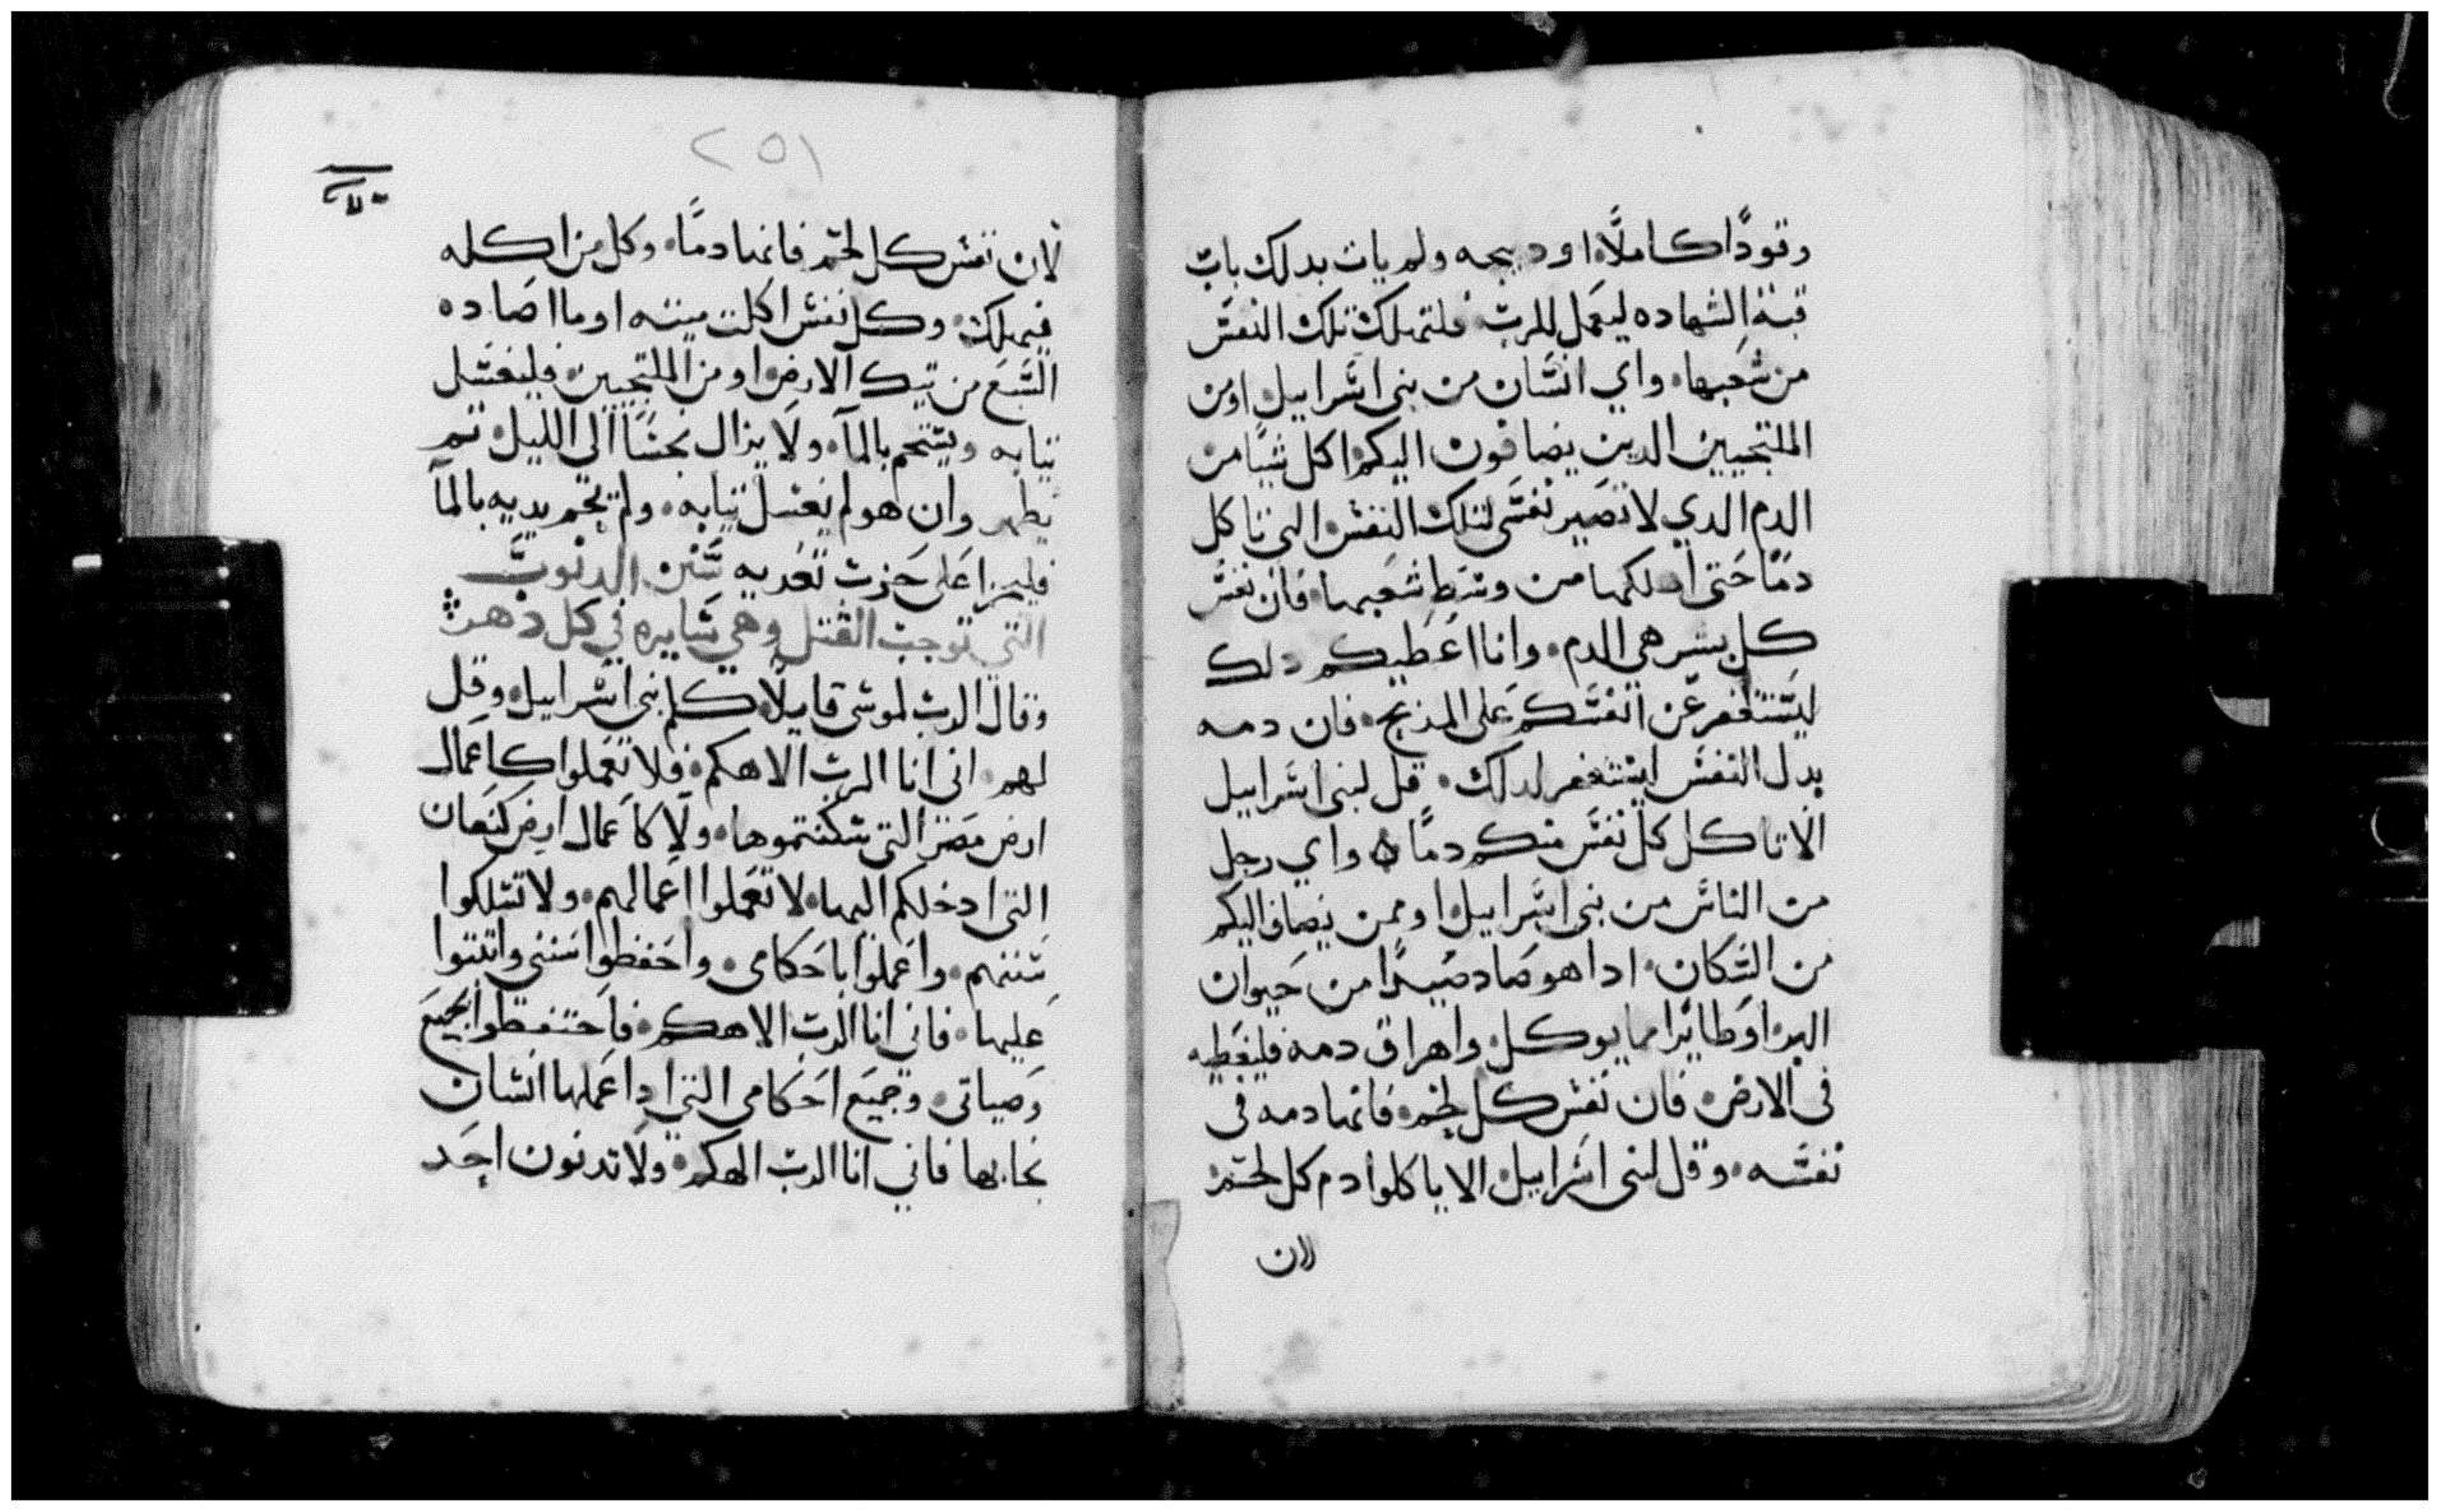 وقودًا كاملًا او دبيحه ولم يات بدلك باب
قبة الشهاده ليعمل للرب فلتهلك تلك النفس
من شعبها واي انسان من بني اسراييل او من
الملتجيين الدين يضافون اليكم اكل شيا من
الدم الدي لا تصير نفسي لتلك النفس التي تاكل
دمًا حتى اهلكها من وسط شعبها فان نفس
كل بشر هي الدم وانا اعطيكم دلك
ليستغفر عن انفسكم على المذبح فان دمه
بدل النفس ليستغفر لدلك قل لبني اسراييل
الا تاكل كل نفس منكم دمًا ٥ واي رجل
من الناس من بني اسراييل او ممن يضاف اليكم
من السكان ادا هو صاد صيدًا من حيوان
البر او طايرا مما يوكل واهراق دمه فليغطيه
في الارض فان نفس كل لحم فانها دمه في
نفسه وقل لبني اسراييل الا ياكلوا دم كل لحم
لان
٢٥١
لان نفس كل لحم فانها دمًا وكل من اكله
فيهلك وكل نفس اكلت ميته او ما اصاده
السبع من تيك الارض او من الملتجيين فليغسل
تيابه ويستحم بالمآ ولا يزال نجسًا الى الليل تم
يطهر وان هو لم يغسل تيابه ولم يحم يديه بالمآ
على تعديه سنن الدنوب
التي توجب القتل وهي سايره في كل دهر
وقال الرب لموسى قايلًا كلم بني اسراييل وقل
لهم اني انا الرب الاهكم فلا تعملوا كاعمال
ارض مصر التي سكنتموها ولا كاعمال ارض كنعان
التي ادخلكم اليها لا تعملوا اعمالهم ولا تسلكوا
سننهم واعملوا باحكامي واحفظوا سنني واتبتوا
عليها فاني انا الرب الاهكم فاحتفظوا بجميع
وصياتي وجميع احكامي التي ادا عملها انسان
نجا بها فاني انا الرب الهكم ولا تدنون احد